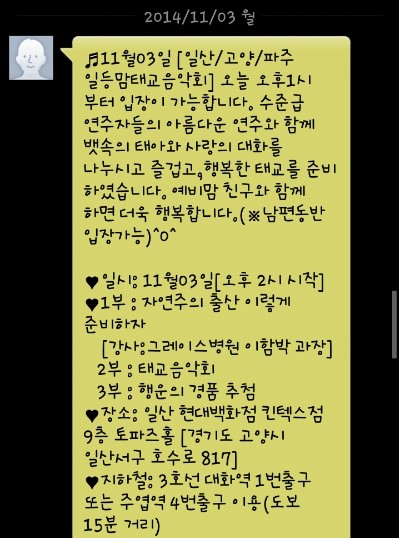 2014/11/03 월
♬11월03일 [일산/고양/파주
일등맘태교음악회] 오늘 오후1시
부터 입장이 가능합니다. 수준급
연주자들의 아름다운 연주와 함께
뱃속의 태아와 사랑의 대화를
나누시고 즐겁고,행복한 태교를 준비
하였습니다. 예비맘 친구와 함께
하면 더욱 행복합니다.(※남편동반
입장가능)^o^
♥일시: 11월03일[오후 2시 시작]
♥1부 : 자연주의 출산 이렇게
준비하자
[강사:그레이스병원 이함박 과장]
2부 : 태교음악회
3부 : 행운의 경품 추첨
♥장소: 일산 현대백화점 킨텍스점
9층 토파즈홀 [경기도 고양시
일산서구 호수로 817]
♥지하철: 3호선 대화역 1번출구
또는 주엽역 4번출구 이용(도보
15분 거리)